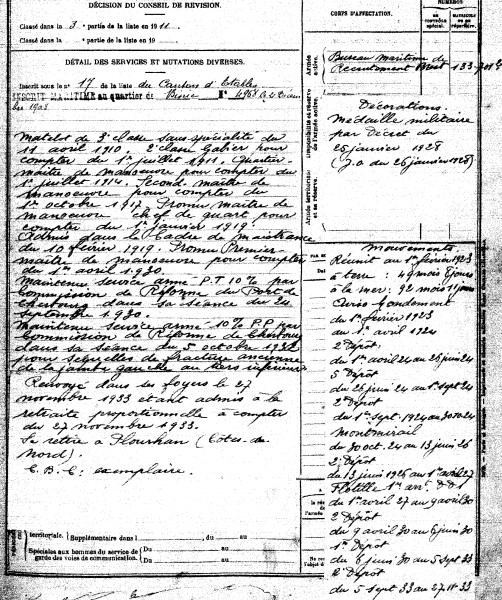 DÉCISION DU CONSEIL DE REVISION.
Classé dans la 3 partie de la liste en 1911
Classé dans la partie de la liste en 19
DÉTAIL DES SERVICES ET MUTATIONS DIVERSES.
Inscrit sous le n° 17 de la liste du Canton d'Etables
INSCRIT MARITIME au quartier de N° 4968
Matelot de 3e classe sans spécialité du
11 avril 1910. 2e classe Gabier pour
compter du 1er juillet 1911. Quartier-
maître de manoeuvre pour compter du
1er juillet 1914. Second maître de
manoeuvre pour compter du
1er octobre 1917. Promu maître de
manoeuvre chef de quart pour
compter du 1er janvier 1919.
Admis dans le Cadre de Maistrance
du 10 février 1919. Promu Premier
maître de manoeuvre pour compter
du 1er avril 1930.
Maintenu service armé P.T 10% par
Commission de Réforme du Port de
Cherbourg dans sa séance du 24
septembre 1930.
Maintenu service armé 10% P.P par
Commission de Réforme de Cherbourg
dans sa séance du 5 octobre 1932
pour séquelles de fracture ancienne
de la jambe gauche au tiers inférieur
Renvoyé dans ses foyers le 27
novembre 1933 étant admis à la
retraite proportionnelle à compter
du 27 novembre 1933.
Se retire à Plourhan (Côtes-du-
Nord).
C.B.C: exemplaire.
territoriale. (Supplémentaire dans du au
Spéciales aux hommes du service de
garde des voies de communication.
Du au
Du au
CORPS D'AFFECTATION.
NUMÉROS
AU CONTRÔLE SPÉCIAL.
MATRICULE OU AU RÉPERTOIRE.
Armée active.
Disponibilité et réserve de l'armée active.
Armée territoriale et sa réserve
Bureau maritime de
Recrutement Brest
Décorations.
Médaille militaire
par Décret du
26 janvier 1928
(J.O du 26 janvier 1928)
Mouvements.
Réunit au 1er février 1923
à terre: 49 mois 8 jours
à la mer: 92 mois 11 jours
du 1er février 1923
au 1er avril 1924
2e Dépôt
du 1er avril 24 au 28 juin 24
5 Dépôt
du 28 juin 24 au 1er sept 24
2e Dépôt
du 1er sept. 1924 au 30 oct 24
Montmirail
du 30 oct. 24 au 13 juin 26
2e Dépôt
du 13 juin 1926 au 1er avril 27
Flotille 1er arrt
du 1er avril 27 au 9 avril 30
2 Dépôt
du 9 avril 30 au 6 juin 30
1er Dépôt
du 6 juin 30 au 5 sept 33
2e Dépôt
du 5 sept 33 au 27 11 33